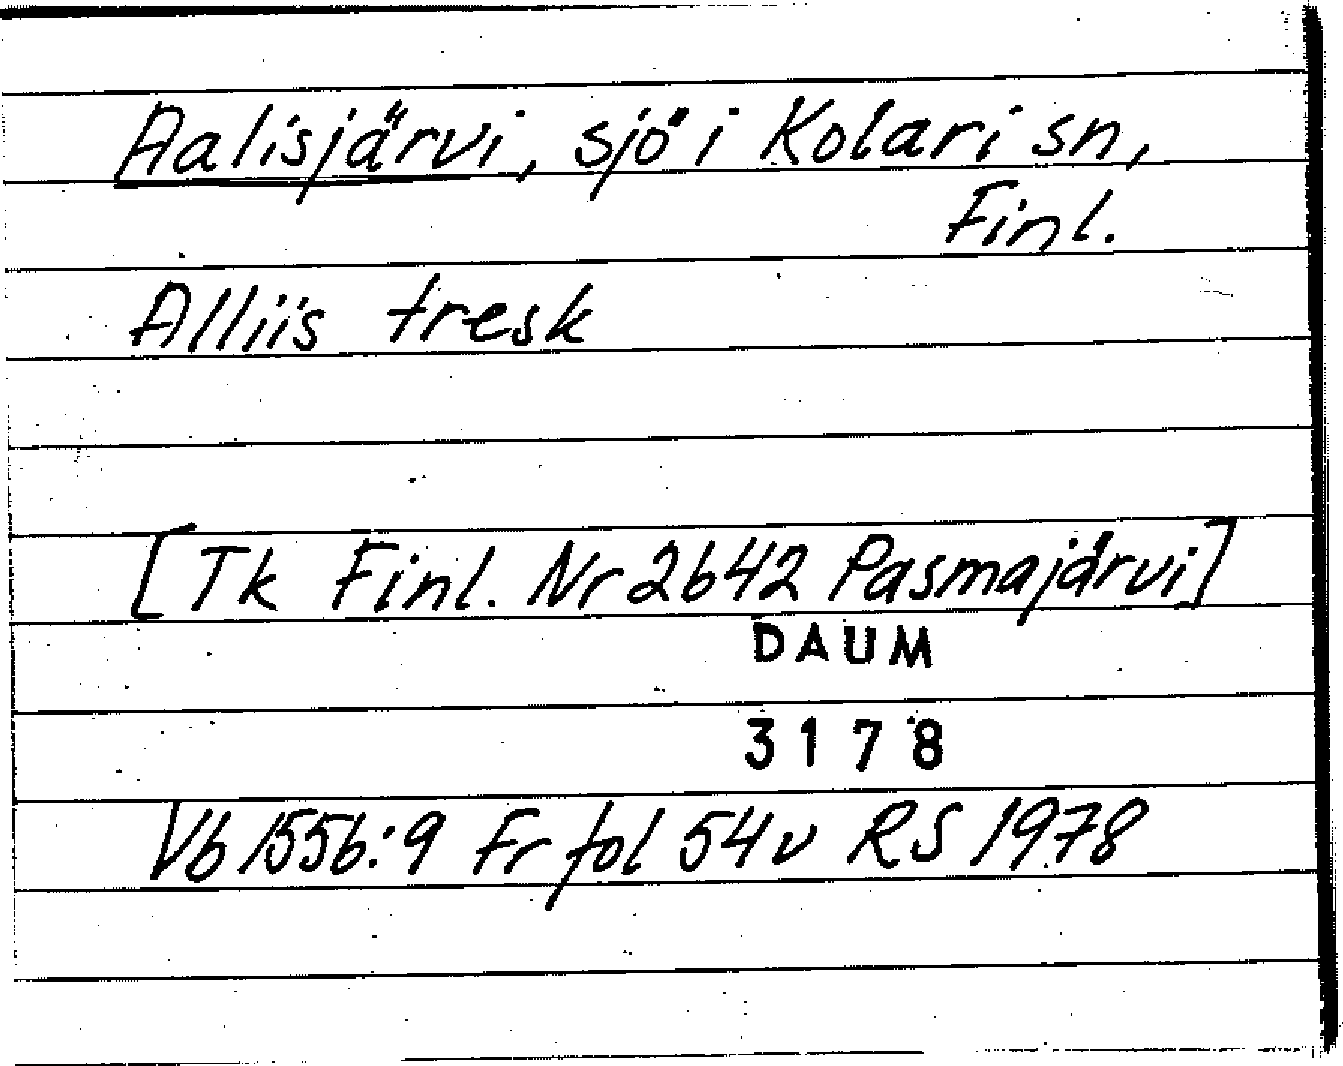 Aalisjärvi, sjö i Kolari sn,
Finl.
Alliis tresk
[Tk Finl. Nr 2642 Pasmajärvi]
DAUM
3178
Vb 1556:9 Fr fol 54v RS 1978